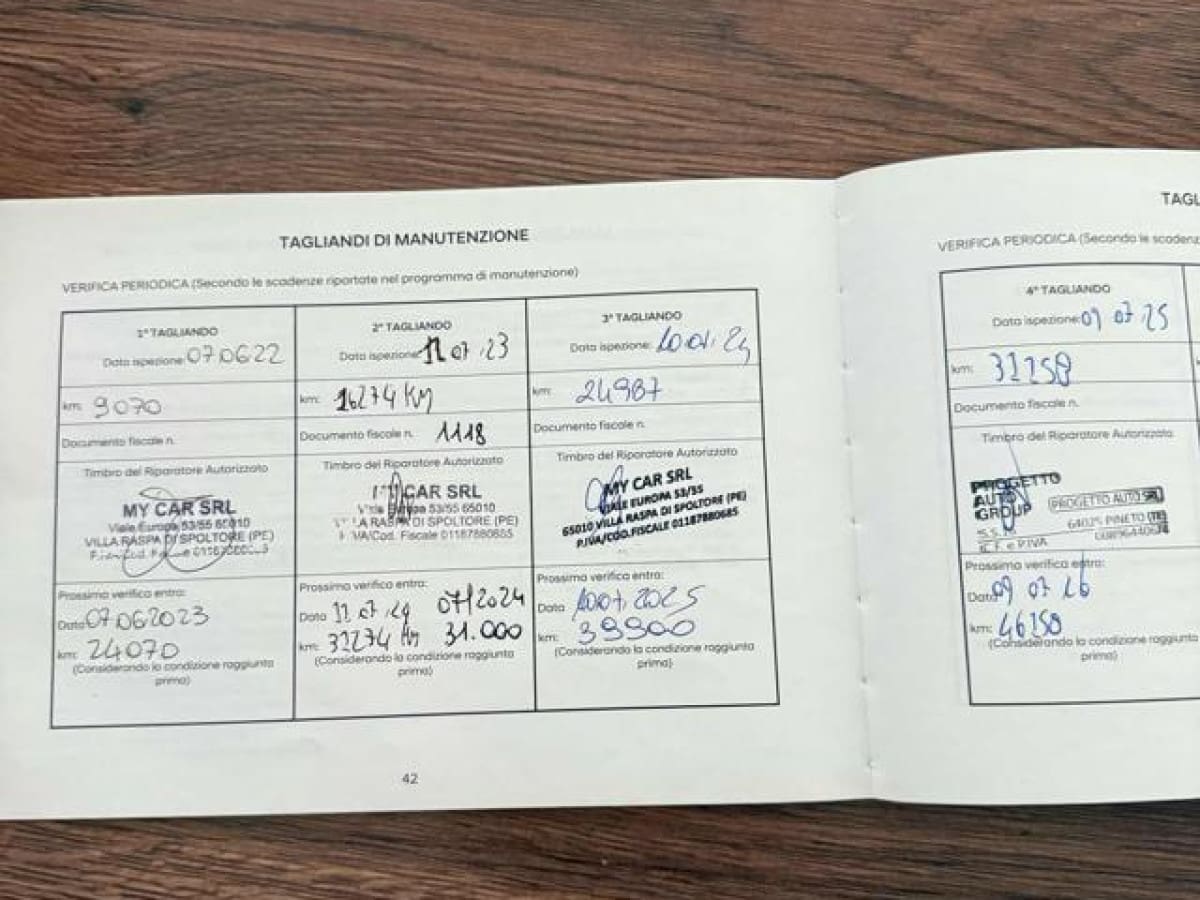 TAGLIANDI DI MANUTENZIONE
VERIFICA PERIODICA (Secondo le scadenze riportate nel programma di manutenzione)
1° TAGLIANDO
Data ispezione: 07.06.22
km: 9070
Documento fiscale n.
Timbro del Riparatore Autorizzato
MY CAR SRL
Viale Europa 53/55 65010
VILLA RASPA DI SPOLTORE (PE)
Prossima verifica entro:
Data 07.06.2023
km: 24070
(Considerando la condizione raggiunta
prima)
2° TAGLIANDO
Data ispezione: 11 07 .23
km: 16274 Km
Documento fiscale n. 1118
Timbro del Riparatore Autorizzato
CAR SRL
Viale Europa 53/55 65010
LA RASPA DI SPOLTORE (PE)
IVA/Cod. Fiscale 01187880685
Prossima verifica entro:
Data 11 .07 .24 07/2024
km: 31274 Km 31.000
(Considerando la condizione raggiunta
prima)
3° TAGLIANDO
Data ispezione:
km: 24987
Documento fiscale n.
Timbro del Riparatore Autorizzato
MY CAR SRL
VIALE EUROPA 53/55
65010 VILLA RASPA DI SPOLTORE (PE)
P.IVA/COD.FISCALE 01187880685
Prossima verifica entro:
Data 2025
km: 39900
(Considerando la condizione raggiunta
prima)
42
TAGL
VERIFICA PERIODICA (Secondo le scadenz
4° TAGLIANDO
Data ispezione: 09 07 25
km: 31158
Documento fiscale n.
Timbro del Riparatore Autorizzato
PROGETTO
AUTO
GROUP
PROGETTO AUTO SRL
64025 PINETO (TE)
C.F. e P.IVA
Prossima verifica entro:
Data 09 07 26
km: 46158
(Considerando la condizione raggiunta
prima)